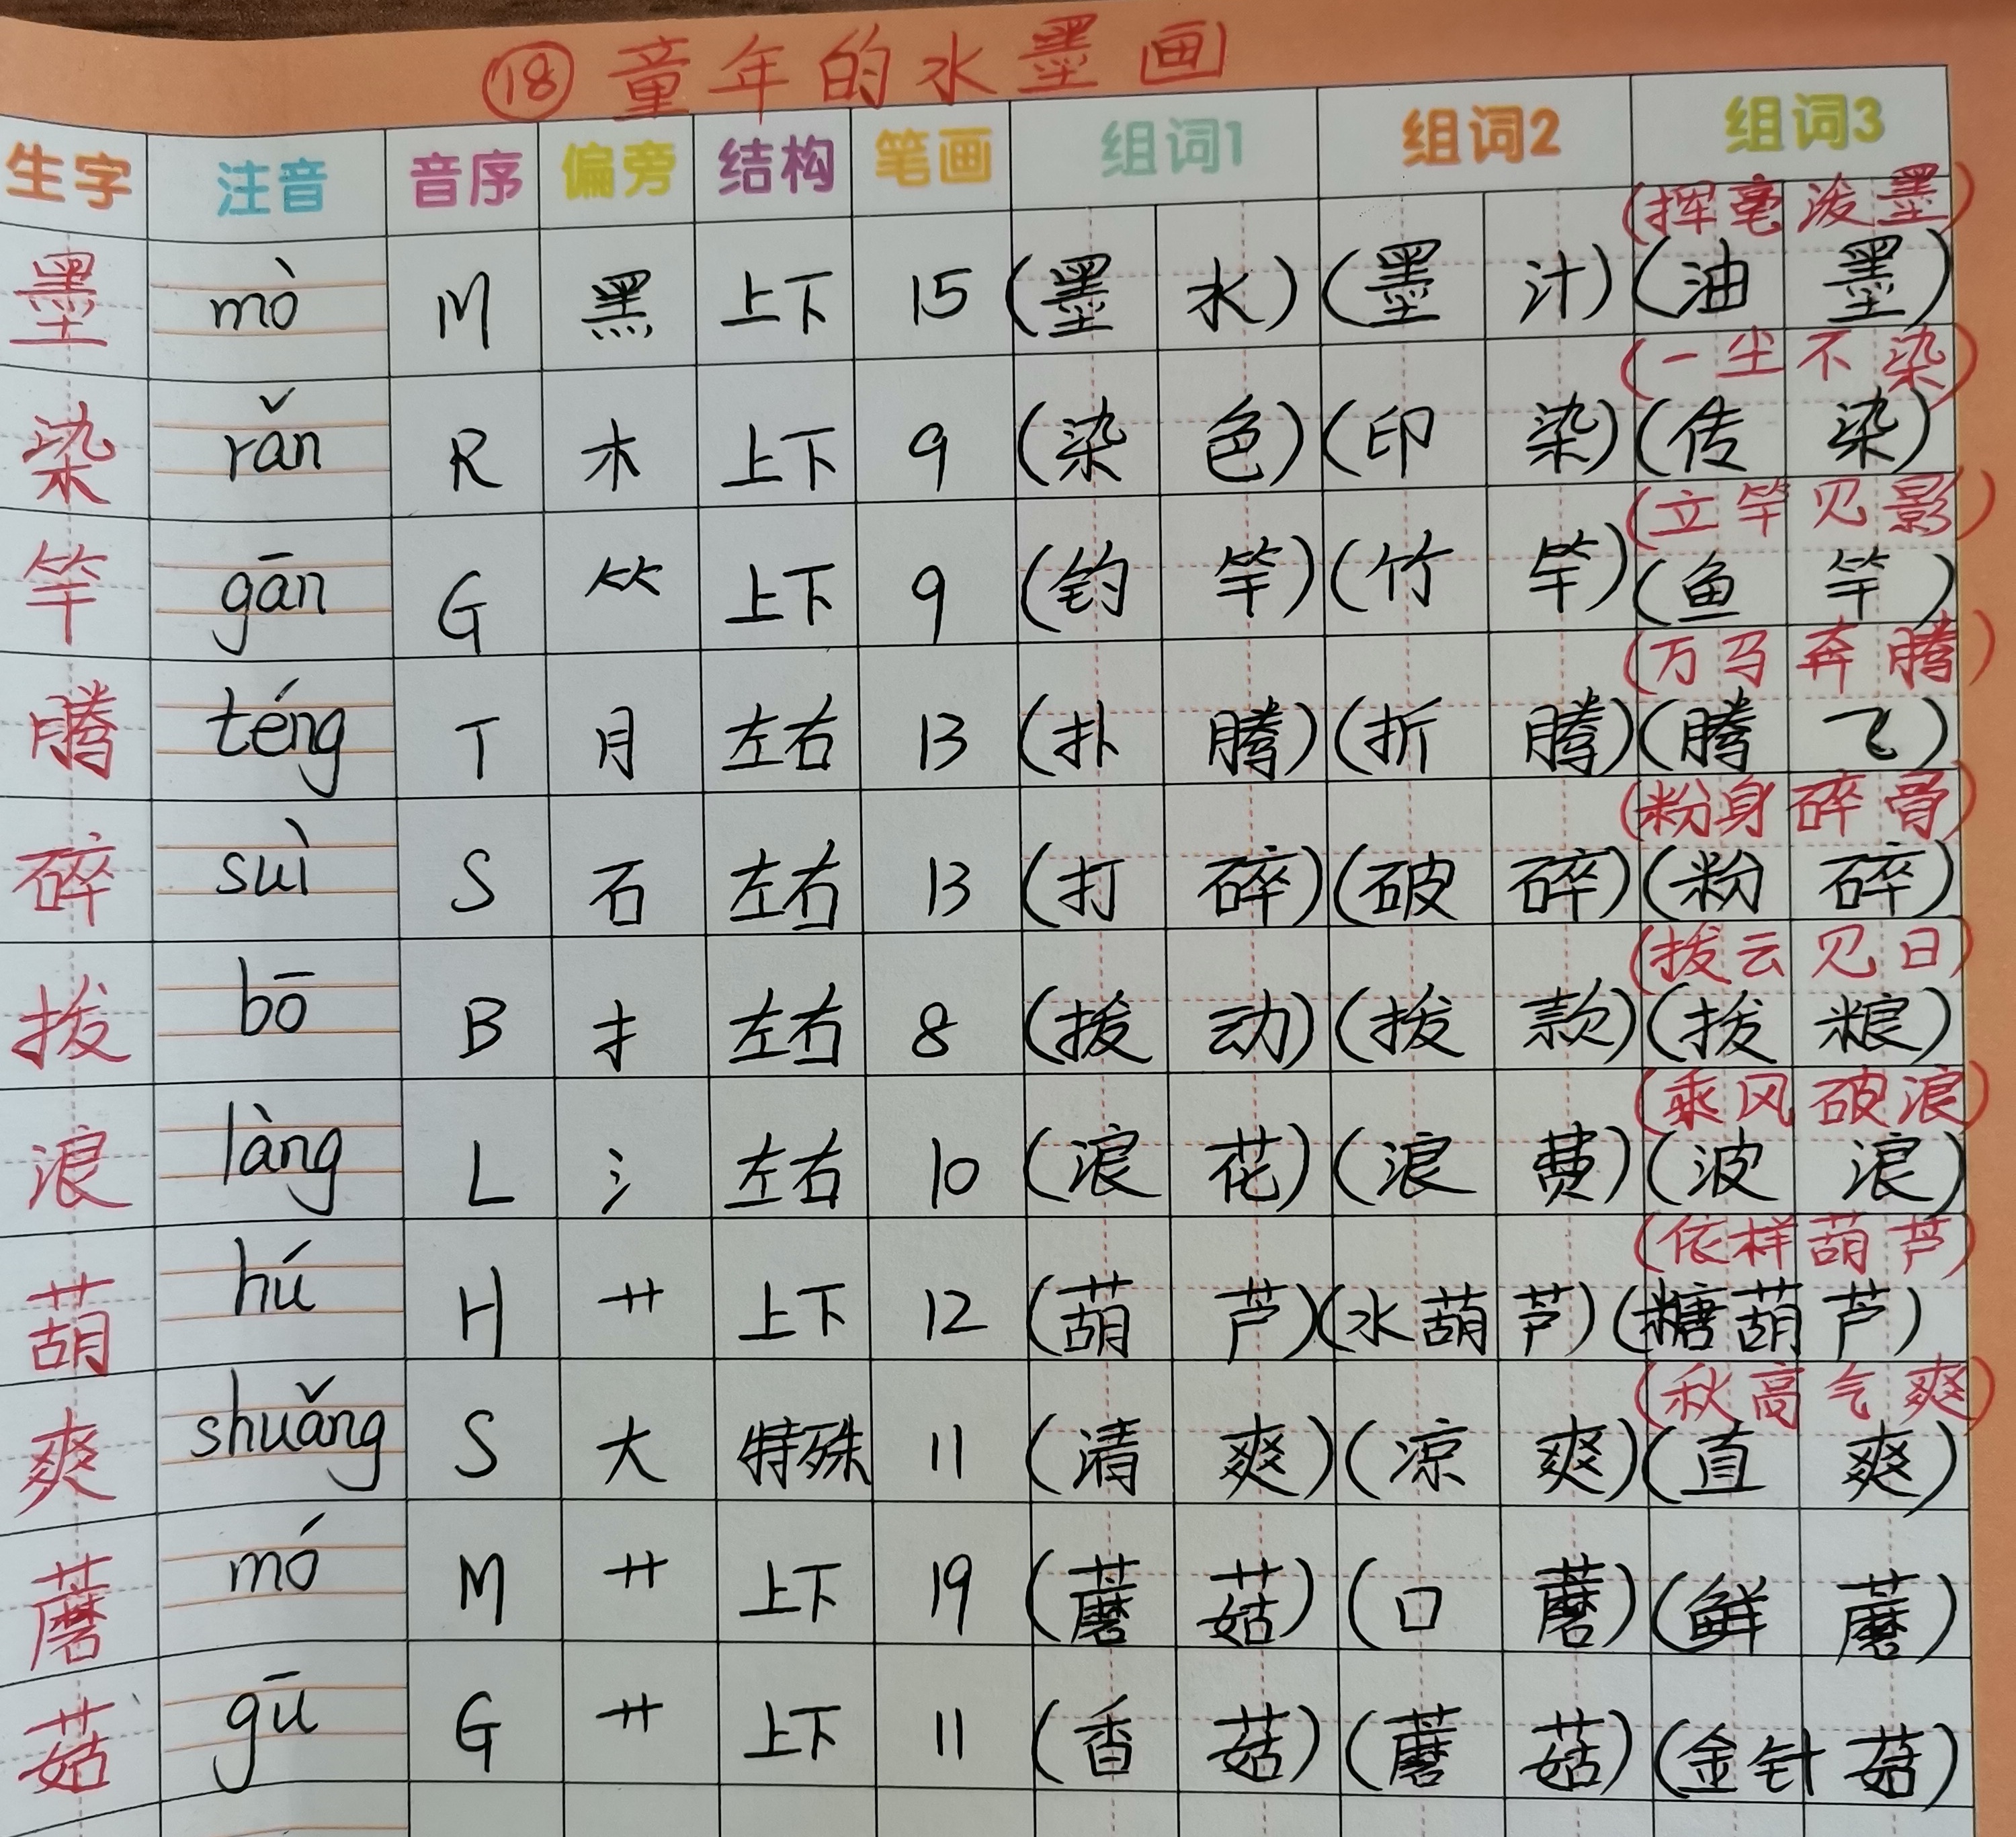 ⑱童年的水墨画
生字 注音 音序 偏旁 结构 笔画 组词1 组词2 组词3
(挥毫泼墨)
墨 mò M 黑 上下 15 (墨水) (墨汁) (油墨)
(一尘不染)
染 rǎn R 木 上下 9 (染色) (印染) (传染)
(立竿见影)
竿 gān G ⺮ 上下 9 (钓竿) (竹竿) (鱼竿)
(万马奔腾)
腾 téng T 月 左右 13 (扑腾) (折腾) (腾飞)
(粉身碎骨)
碎 suì S 石 左右 13 (打碎) (破碎) (粉碎)
(拨云见日)
拨 bō B 扌 左右 8 (拨动) (拨款) (拨粮)
(乘风破浪)
浪 làng L 氵 左右 10 (浪花) (浪费) (波浪)
(依样葫芦)
葫 hú H 艹 上下 12 (葫芦) (水葫芦) (糖葫芦)
(秋高气爽)
爽 shuǎng S 大 特殊 11 (清爽) (凉爽) (直爽)
蘑 mó M 艹 上下 19 (蘑菇) (口蘑) (鲜蘑)
菇 gū G 艹 上下 11 (香菇) (蘑菇) (金针菇)